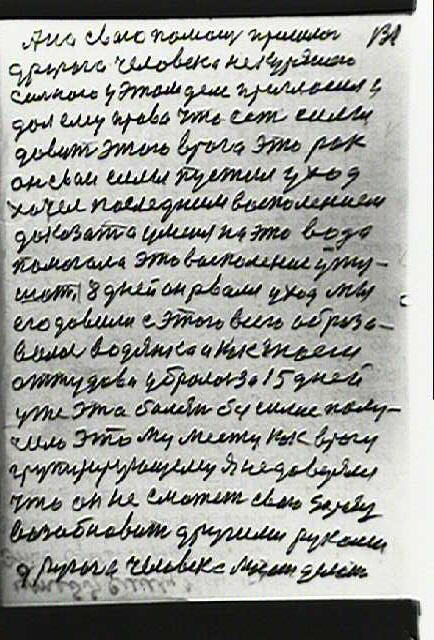 А на свою помощь пришлог 131
другого человека не курящего
сильного у этом деле пригласил и
дал ему права что сам силы
довит этого врага это рак
он свои силы пустил у ход
хочел последним восполением
доказат а умена на это вода
помогала это восполение
8 дней он рвали у ход мы
его довили с этого всего образо-
валас водянка и как
оттудова убралось за 15 дней
уже эта болезн бесилие полу-
чило этому месту как врагу
групирующему я не доверял
что он не сможет свою борбу
возобновит другими руками
другога человека может делат